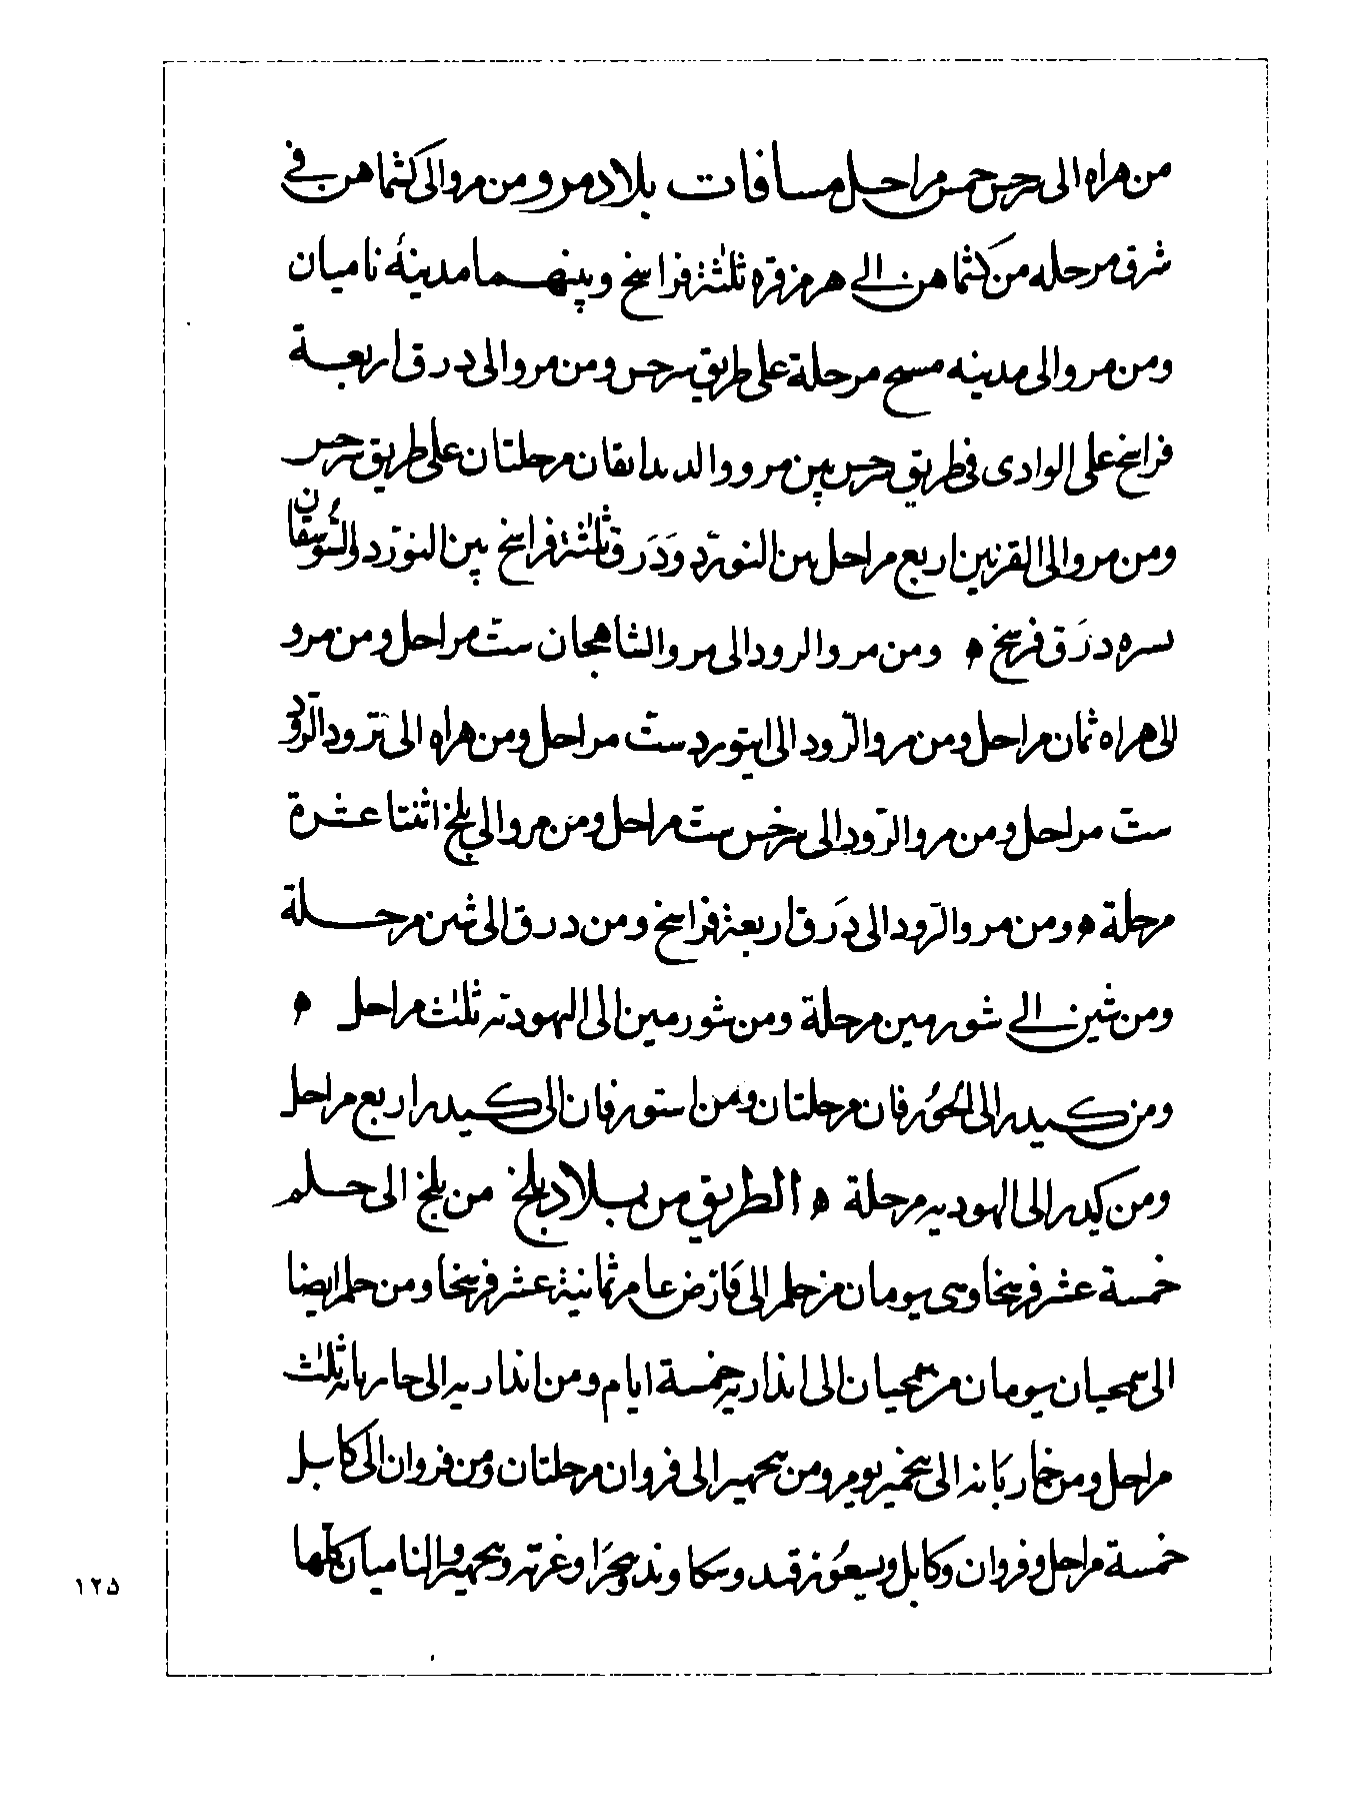 من هراه الى سرخس خمس مراحل مسافات بلاد مرو ومن مرو الى كشماهن في
شرق مرحله من كشماهن الى هرمزقره ثلثة فراسخ وبينهما مدينة ناميان
ومن مرو الى مدينه مسح مرحلة على طريق سرخس ومن مرو الى درق اربعة
فراسخ على الوادى فى طريق سرخس بين مرو والدندانقان مرحلتان على طريق سرخس
ومن مرو الى القرنين اربع مراحل بين النورد ودرق ثلثة فراسخ بين النورد والشوسقان
درق فرسخ ومن مرو الرود الى مرو الشاهجان ست مراحل ومن مرو
الى هراه ثمان مراحل ومن مرو الرود الى ابيورد ست مراحل ومن هراه الى
ست مراحل ومن مرو الرود الى سرخس ست مراحل ومن مرو الى بلخ اثنتا عشرة
مرحلة ومن مرو الرود الى درق اربعة فراسخ ومن درق الى شين مرحلة
ومن شين الى شورمين مرحلة ومن شورمين الى اليهودته ثلث مراحل
ومن كيدر الى الجوزفان مرحلتان ومن استورفان الى كيدر اربع مراحل
ومن كيدر الى اليهوديه مرحلة الطريق من بلاد بلخ من بلخ الى حلم
خمسة عشر فرسخا وهى يومان من حلم الى قارض عامر ثمانية عشر فرسخا ومن حلم ايضا
الى سمحيان يومان من سمحيان الى انداربه خمسة ايام ومن اندارابه الى جاربانه ثلث
مراحل ومن جاربانه الى بنجمير يوم ومن بنجهير الى فروان مرحلتان ومن فروان الى كابل
خمسة مراحل وفروان وكابل وسكاوند وغزنه وبنجهير والناميان كلها
١٢٥